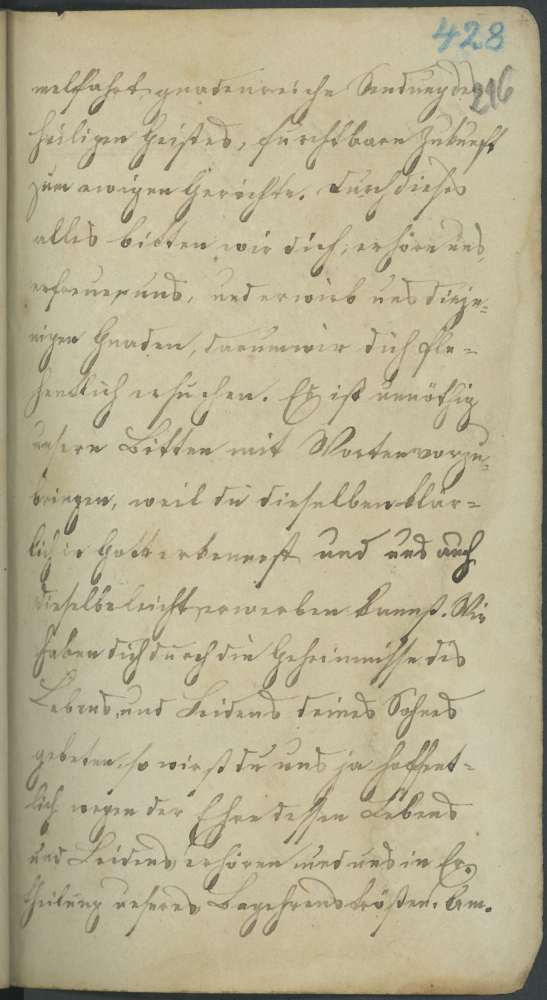 428
216
melfahrt, gnadenreiche Sendung des
heiligen Geistes, furchtbare Zukunft
zum ewigen Gerichte. Durch dieses
alles bitten wir dich, erhöre uns,
erfreue uns, und erwirb uns dieje-
nigen Gnaden, darum wir dich fle-
hentlich ersuchen. Es ist unnöthig
unsere Bitten mit Worten vorzu-
bringen, weil du dieselben klär-
lich in Gott erkennest und uns auch
dieselbe leicht erwerben kannst. Wir
haben dich durch die Geheimnisse des
Lebens und Leidens deines Sohnes
gebeten, so wirst du uns ja hoffent-
lich wegen der Ehre dessen Lebens
und Leidens erhören und uns in Er-
theilung unseres Begehrens trösten. Am.